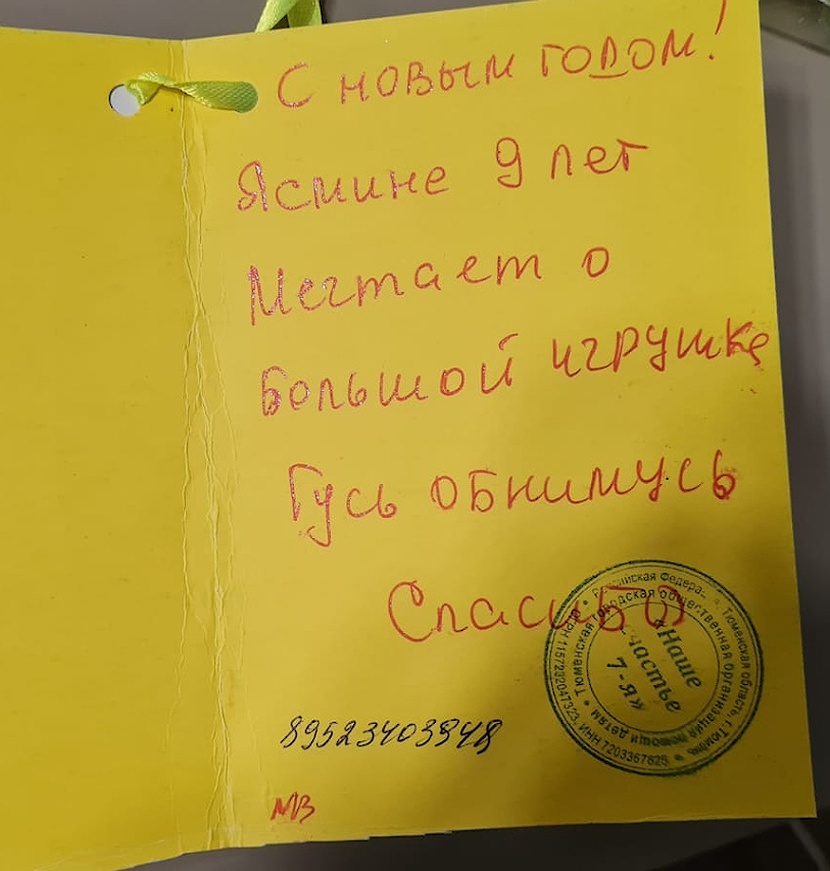 С новым годом!
Ясмине 9 лет
Мечтает о
большой игрушке
Гусь обнимусь
Спасибо
89523403848
МВ
Российская Федерация, Тюменская область, г. Тюмень
1157232047323, ИНН 7203367825
Тюменская городская общественная организация помощи детям
«Наше
счастье
7-я»